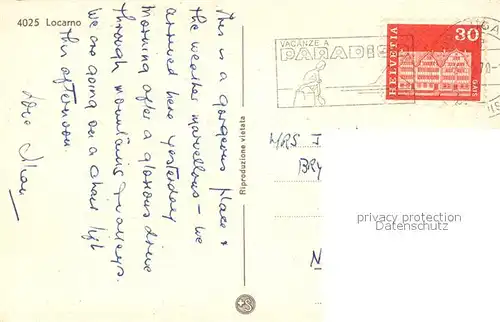 4025 Locarno
This is a gorgeous place &
the weather marvellous - we
arrived here yesterday
morning after a glorious drive
through mountains & valleys.
We are going on a chair lift
this afternoon.
Love
Riproduzione vietata
VACANZE A
PARADISO
HELVETIA
30
GAIS
MRS
BRY
N
privacy protection
Datenschutz